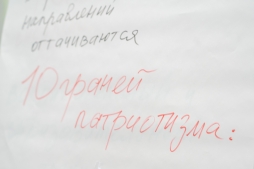 направлений
оттачиваются
10 граней
патриотизма: